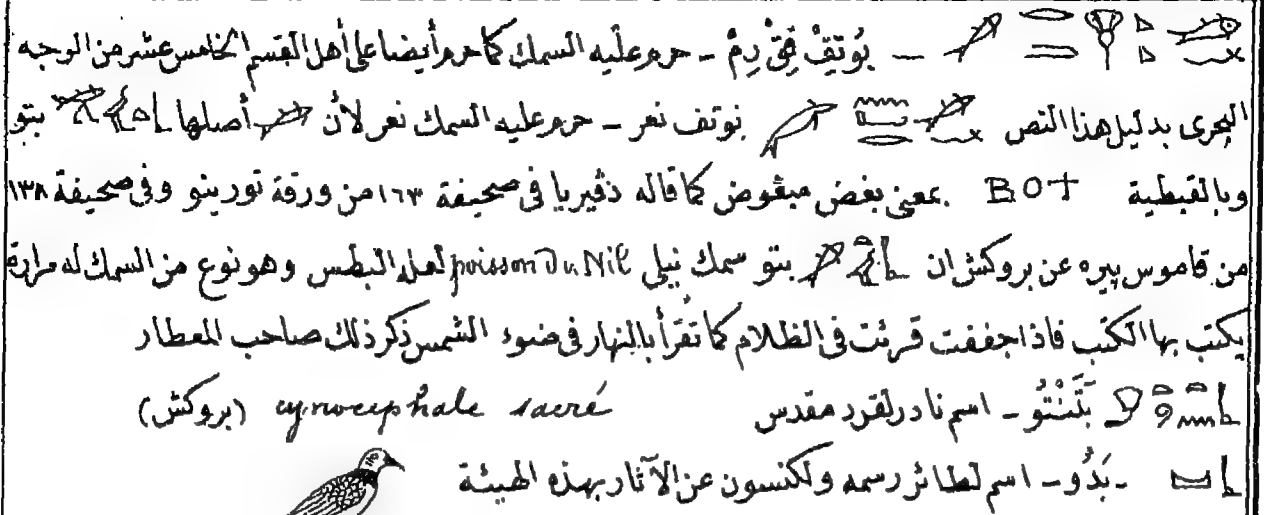 — بُوتِفْ قِقْ رِمْ - حرم عليه السمك كما حرم أيضا على أهل القسم الخامس عشر من الوجه
البحرى بدليل هذا النص نوتف نعر - حرم عليه السمك نعر لأن أصلها بتو
وبالقبطية BOT بمعنى بغض مبغوض كما قاله دڤيريا فى صحيفة ١٦٣ من ورقة تورينو وفى صحيفة ١٣٨
من قاموس پيره عن بروكش ان بتو سمك نيلى poisson du Nil لعله البطس وهو نوع من السمك له مرارة
يكتب بها الكتب فاذا جففت قرئت فى الظلام كما تقرأ بالنهار فى ضوء الشمس ذكر ذلك صاحب المعطار
بَتَنْتُو - اسم نادر لقرد مقدس cynocephale sacré (بروكش)
- بَدُو - اسم لطائر رسمه ولكنسون عن الآثار بهذه الهيئة